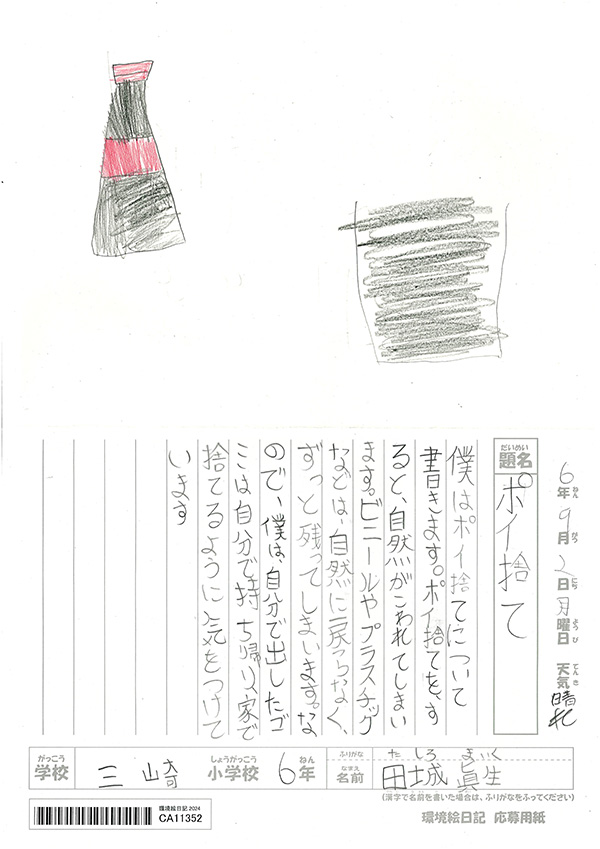 6年9月2日月曜日 天気晴れ
ねん がつ にち ようび てんき
だいめい
題名 ポイ捨て
僕はポイ捨てについて
書きます。ポイ捨てを、す
ると、自然がこわれてしまい
ます。ビニールやプラスチック
などは、自然に戻らなく、
ずっと残ってしまいます。な
ので、僕は、自分で出したゴ
ミは自分で持ち帰り、家で
捨てるように気をつけて
います
がっこう しょうがっこう ねん ふりがな たしろ まいく
学校 三崎 小学校 6年 なまえ 名前 田城 眞生
(漢字で名前を書いた場合は、ふりがなをふってください)
環境絵日記 2024
CA11352
環境絵日記 応募用紙